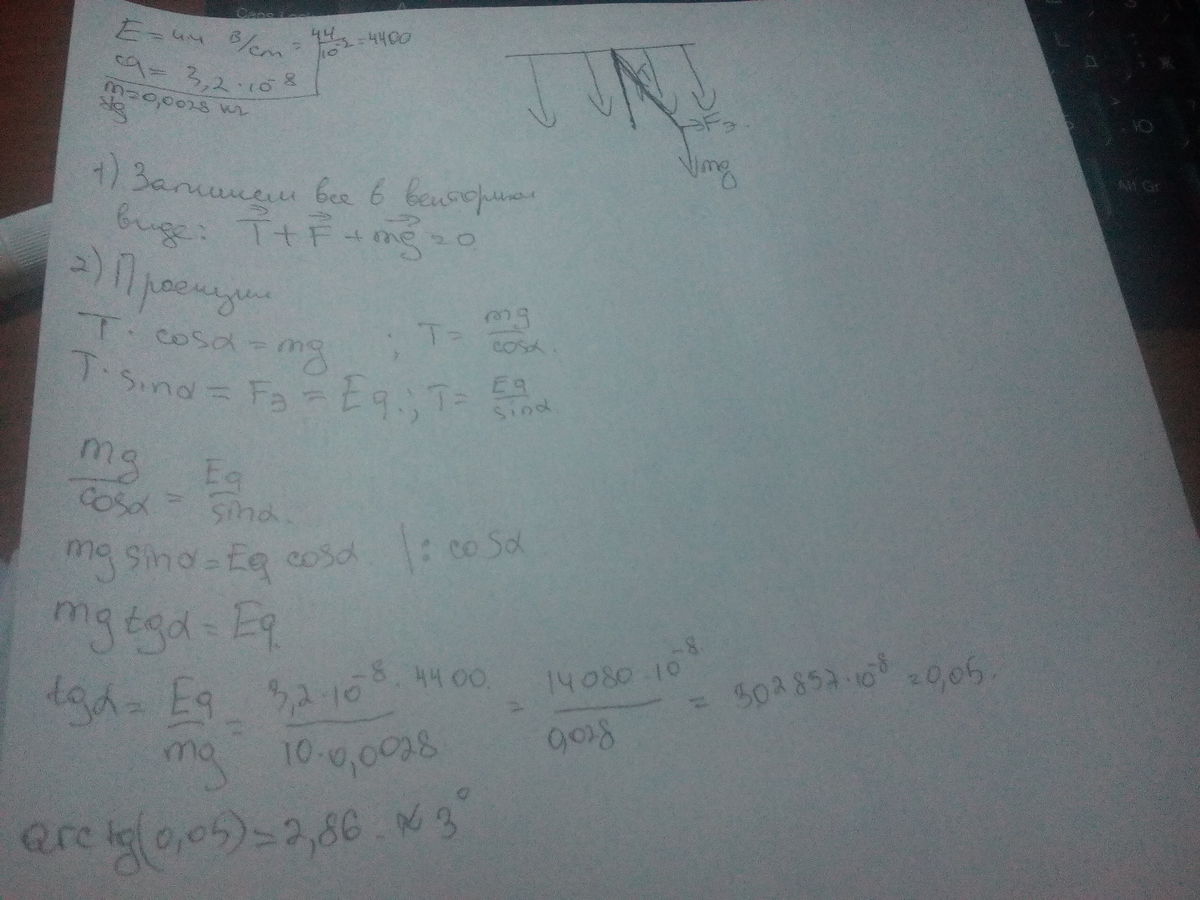 E = 44 В/cm = 44/10⁻² = 4400
q = 3,2·10⁻⁸
m = 0,0028 кг
Fэ
mg
1) Запишем все в векторном
виде: T + F + mg = 0
2) Проекции
T· cosα = mg ; T = mg/cosα.
T· sinα = Fэ = Eq.; T = Eq/sinα
mg/cosα = Eq/sinα.
mg sinα = Eq cosα |: cosα
mg tgα = Eq.
tgα = Eq/mg = 3,2·10⁻⁸· 4400./10·0,0028 = 14080·10⁻⁸/0,028 = 502857·10⁻⁸ = 0,05.
arctg(0,05) = 2,86. ≈ 3°
Alt Gr
Ю
Ж
Д
L